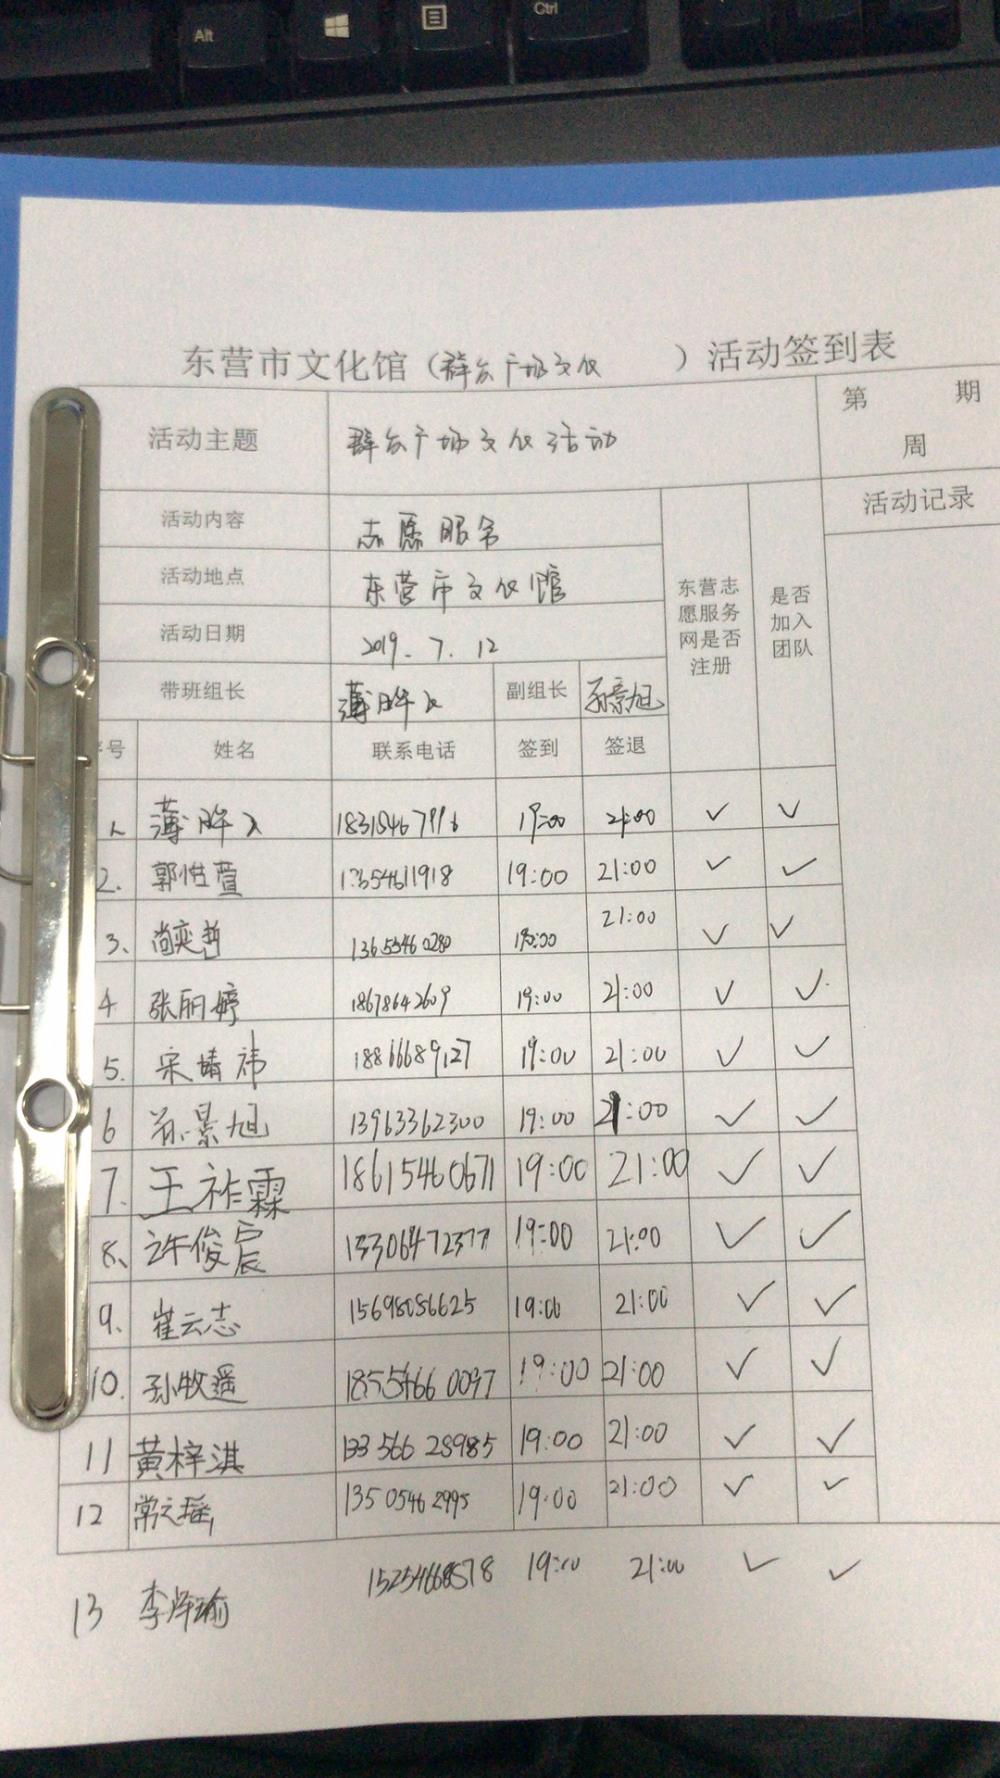 Alt
Ctrl
东营市文化馆（群众广场文化）活动签到表
活动主题 群众广场文化活动 第 期
周
活动内容 志愿服务 东营志愿服务网是否注册 是否加入团队 活动记录
活动地点 东营市文化馆
活动日期 2019.7.12
带班组长 薄 副组长 孙景旭
号 姓名 联系电话 签到 签退
1. 薄 19:00 21:00 ✓ ✓
2. 郭 萱 13654611918 19:00 21:00 ✓ ✓
3. 尚奕哲 13655460280 21:00 ✓ ✓
4 张丽婷 18678642609 19:00 21:00 ✓ ✓
5. 宋婧祎 18866689127 19:00 21:00 ✓ ✓
6 孙景旭 13963362300 19:00 21:00 ✓ ✓
7. 王祚霖 18615460671 19:00 21:00 ✓ ✓
8. 许俊宸 13306472377 19:00 21:00 ✓ ✓
9. 崔云志 15698086625 19:00 21:00 ✓ ✓
10. 孙牧遥 18554660097 19:00 21:00 ✓ ✓
11 黄梓淇 133 566 28985 19:00 21:00 ✓ ✓
12 常文瑶 135 0546 2995 19:00 21:00 ✓ ✓
13 李 瑜 15254668578 19:00 21:00 ✓ ✓